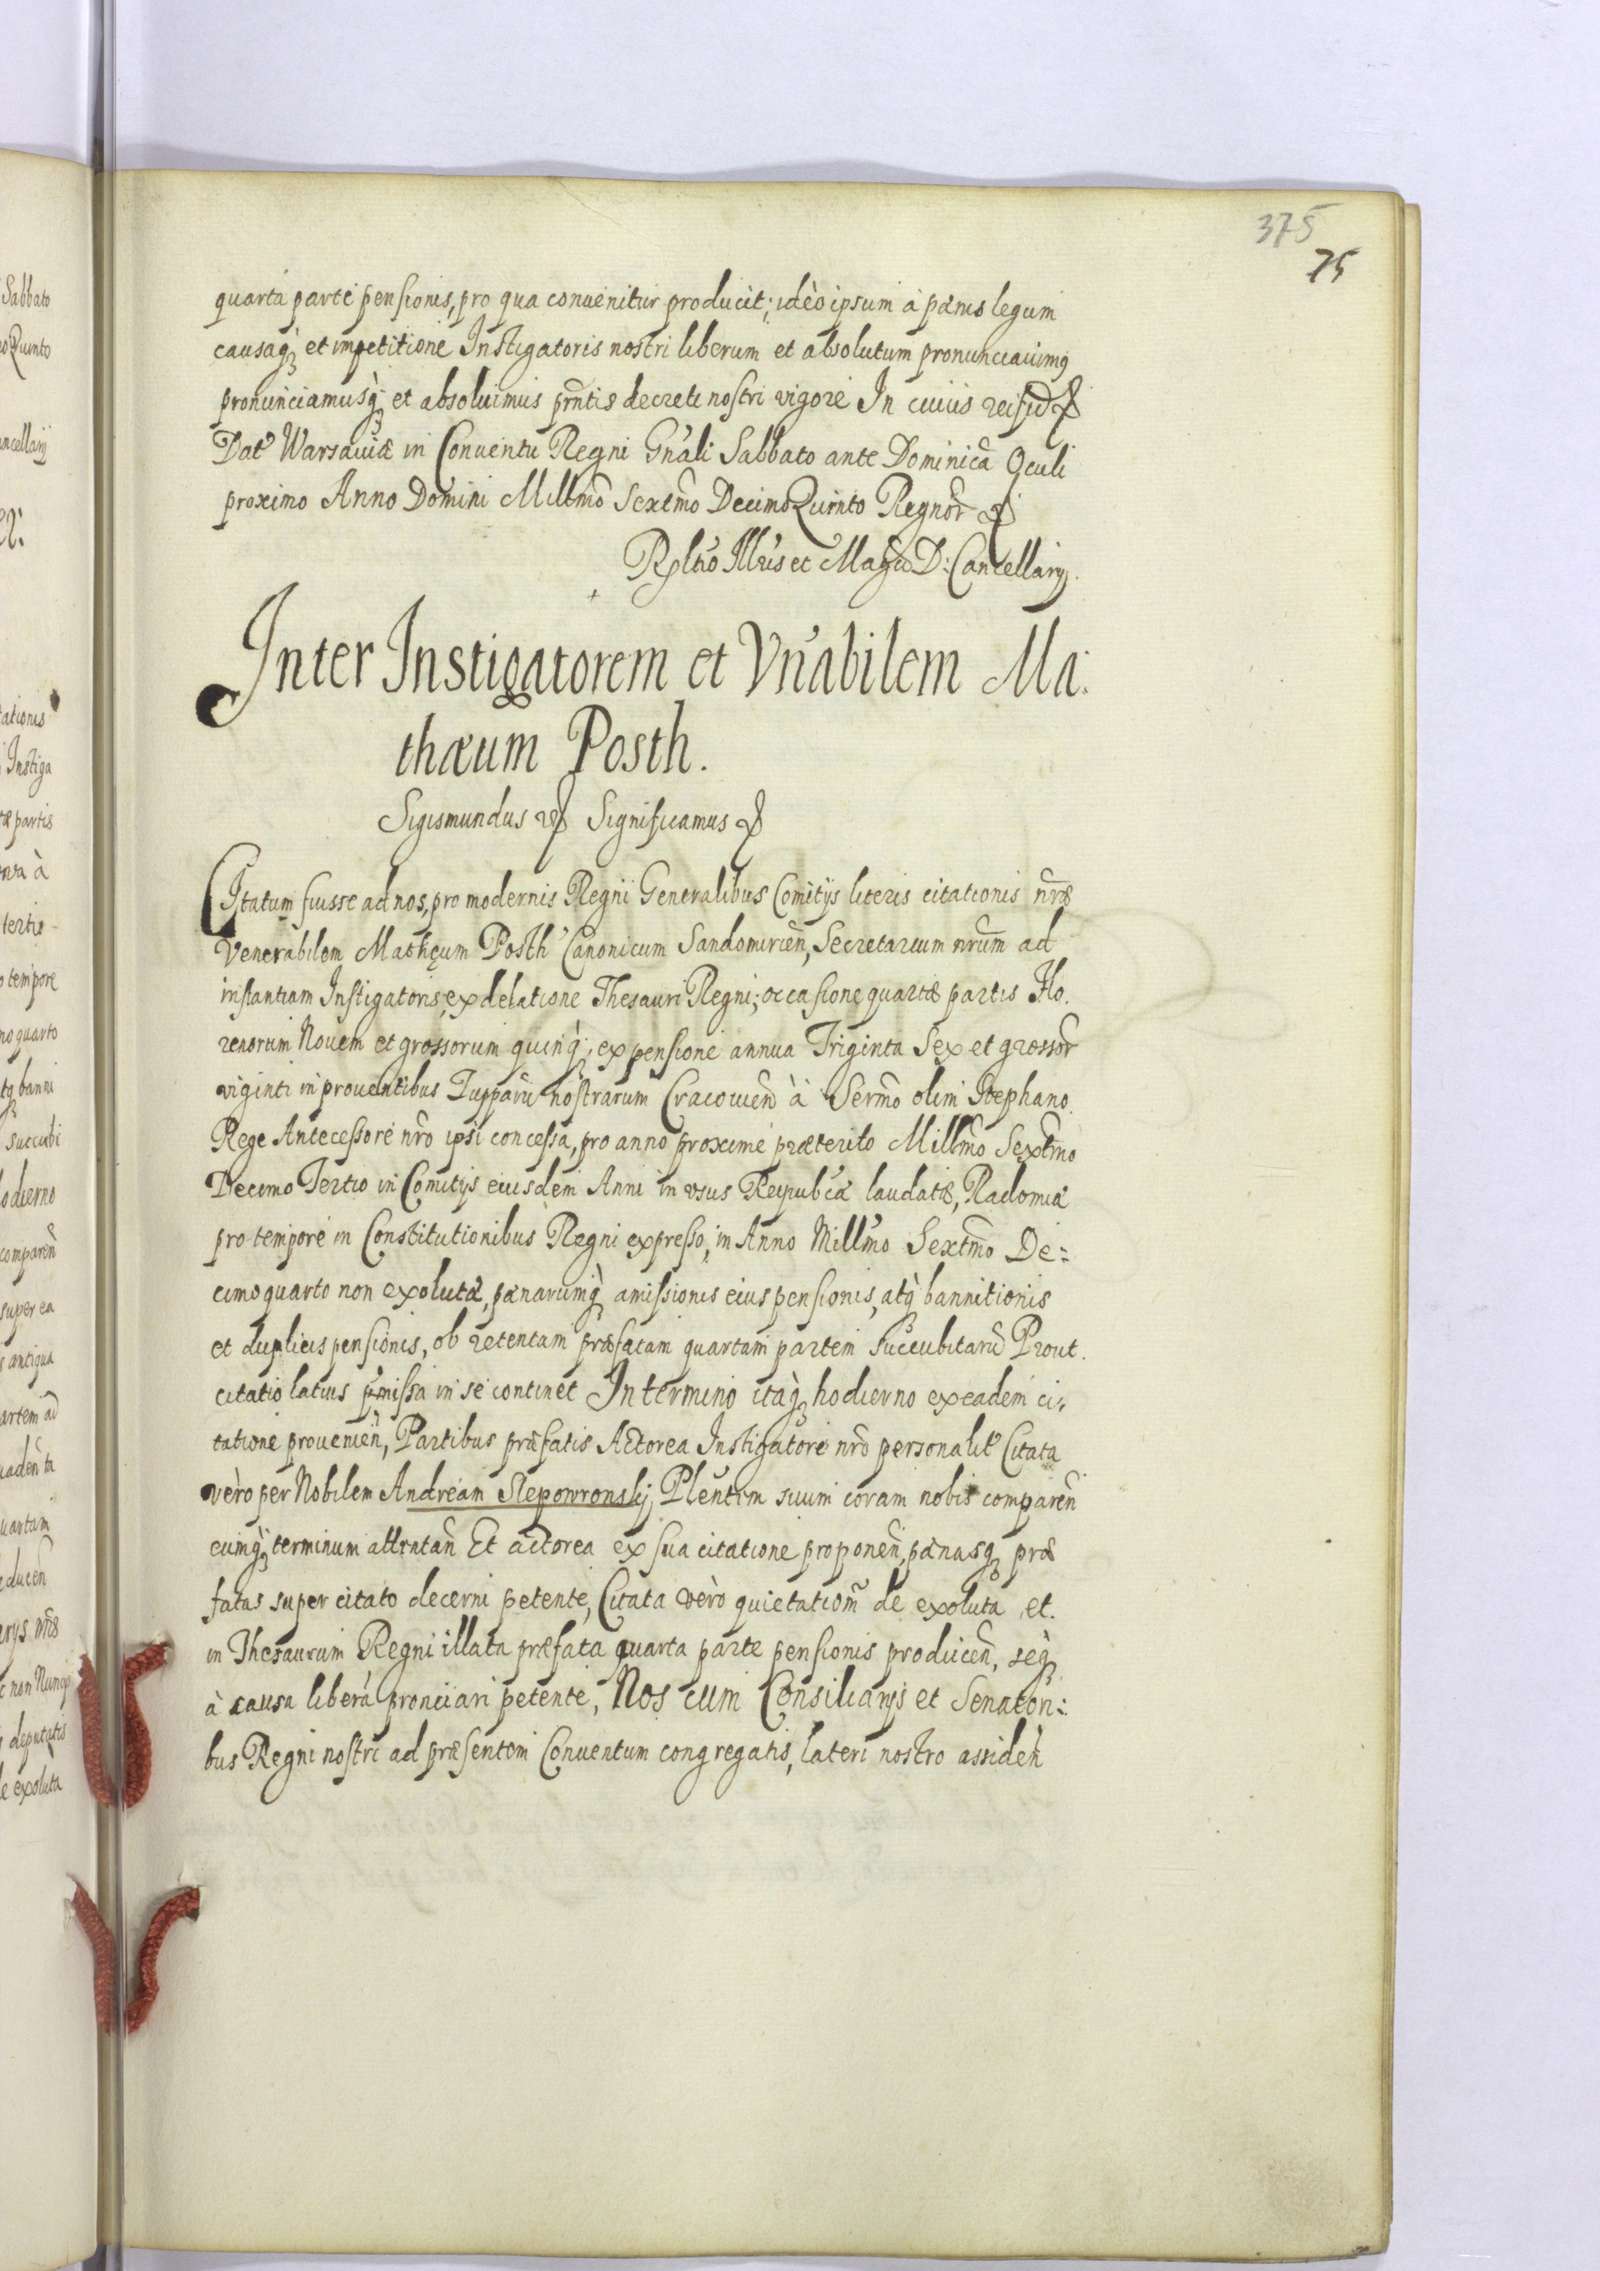 375
75
quarta parte pensionis, pro qua conuenitur producit; ideò ipsum à pænis legum
causaq̃ et impetitione Instigatoris nostri liberum et absolutum pronunciauimq
pronunciamusq̃ et absoluimus pr̃ntis decreti nostri vigore In cuius rei fid
Dat Warsauiæ in Conuentu Regni Gn̄ali Sabbato ante Dominicā Oculi
proximo Anno Domini Millm̄o Sextm̄o DecimoQuinto Regnor̄
Rltio Illris et Magci D: Cancellarij.
Inter Instigatorem et Vn̄abilem Ma:
thæum Posth.
Sigismundus Significamus
CItatum fuisse ad nos, pro modernis Regni Generalibus Comitijs literis citationis nr̄æ
Venerabilem Mathęum Posth Canonicum Sandomirieñ, Secretarium nr̄um ad
instantiam Instigatoris, ex delatione Thesauri Regni; occasione quartæ partis Flo.
renorum Nouem et grossorum quinq̃, ex pensione annua Triginta Sex et grossor̄
viginti in prouentibus Zupparū nostrarum Cracouieñ à Sermo olim Stephano
Rege Antecessore nr̄o ipsi concessa, pro anno proxime præterito Millm̄o Sextm̄o
Decimo Tertio in Comitijs eiusdem Anni in vsus Reipub̄cæ laudatæ, Radomiæ
pro tempore in Constitutionibus Regni expresso, in Anno Millm̄o Sextm̄o De=
cimoquarto non exolutæ, pænarumq̃ amissionis eius pensionis, atq̃ bannitionis
et duplicis pensionis, ob retentam præfatam quartam partem succubitarū Prout
citatio latius p̃missa in se continet In termino itaq̃ hodierno ex eadem ci,
tatione prouenieñ, Partibus præfatis Actorea Instigatore nr̄o personalit Citata
verò per Nobilem Andream Slepowronskj Plen̄tem suum coram nobis compareñ
eumq̃ terminum attentañ Et actorea ex sua citatione proponeñ, pænasq̃ præ
fatas super citato decerni petente, Citata verò quietationm̄ de exoluta et.
in Thesaurum Regni illata præfata quarta parte pensionis produceñ, seq̃
à causa liberā pronciari petente, Nos cum Consiliarijs et Senatori:
bus Regni nostri ad præsentem Conuentum congregatis, lateri nostro assideñ